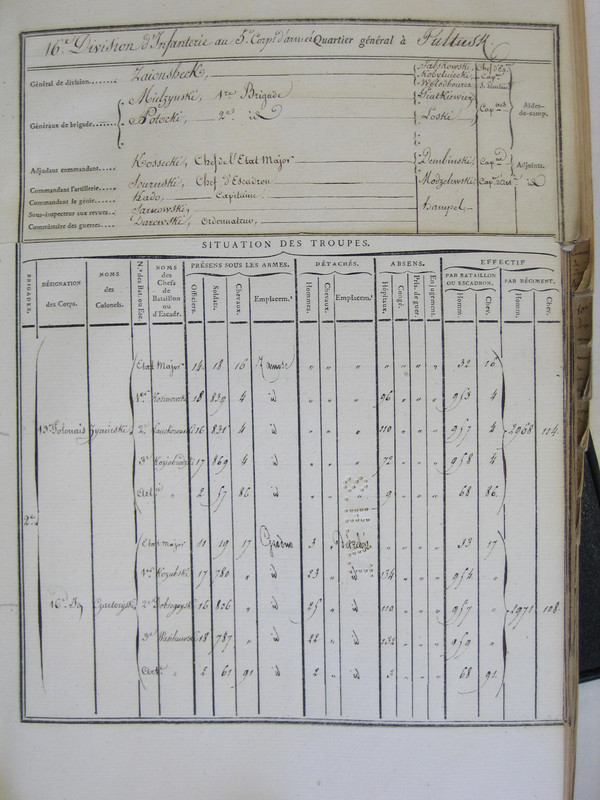 16e. Division d'Infanterie au 5e. Corps d'armée Quartier général à Pultusk.
Général de division....... Zaionsheck,
Généraux de brigade....... Mielzynski, 1re Brigade
Potocki, 2e id
Kobylniecki, Cap.ne
Piatkiewiez
Loski
Aides-de-camp.
Adjudant commandant..... Kossecki, Chef de l'Etat Major Dembinski, Cap.ne Adjoints.
Commandant l'artillerie..... Chef d'Escadron Modzelewski, id
Commandant le génie..... Kado, Capitaine
Sous-inspecteur aux revues... Tarnowski, Hampel
Commissaire des guerres..... Ordonnateur,
SITUATION DES TROUPES.
BRIGADES.
DÉSIGNATION des Corps.
NOMS des Colonels.
N.os des Bat. ou Esc.
NOMS des Chefs de Bataillon ou d'Escadr.
PRÉSENS SOUS LES ARMES.
Officiers. Soldats. Chevaux. Emplacem.t
DÉTACHÉS.
Hommes. Chevaux. Emplacem.t
ABSENS.
Hôpitaux. Congé. Pris. de guer. En jugement.
EFFECTIF
PAR BATAILLON OU ESCADRON.
Homm. Chev.
PAR RÉGIMENT.
Homm. Chev.
Etat Major 14 18 16 Zamosc " " " " " " " 32 16
1er 18 839 4 id " " " 96 " " " 953 4
13e Polonais Zymirski 2e 16 831 4 id " " " 110 " " " 957 4 2968 114
3e 17 869 4 id " " " 72 " " " 958 4
Art.ie " 2 57 86 id " " " 9 " " " 68 86
2e
Etat Major 11 19 17 3 " " " " " 33 17
1er Kozubski 17 780 " id 23 " id 134 " " " 954 "
16e Id Czartoryski 2e 16 826 " id 25 " id 110 " " " 957 " 2971 108
3e 18 787 " id 22 " id 132 " " " 959 "
Art.ie " 2 61 91 id 2 " id 3 " " " 68 91